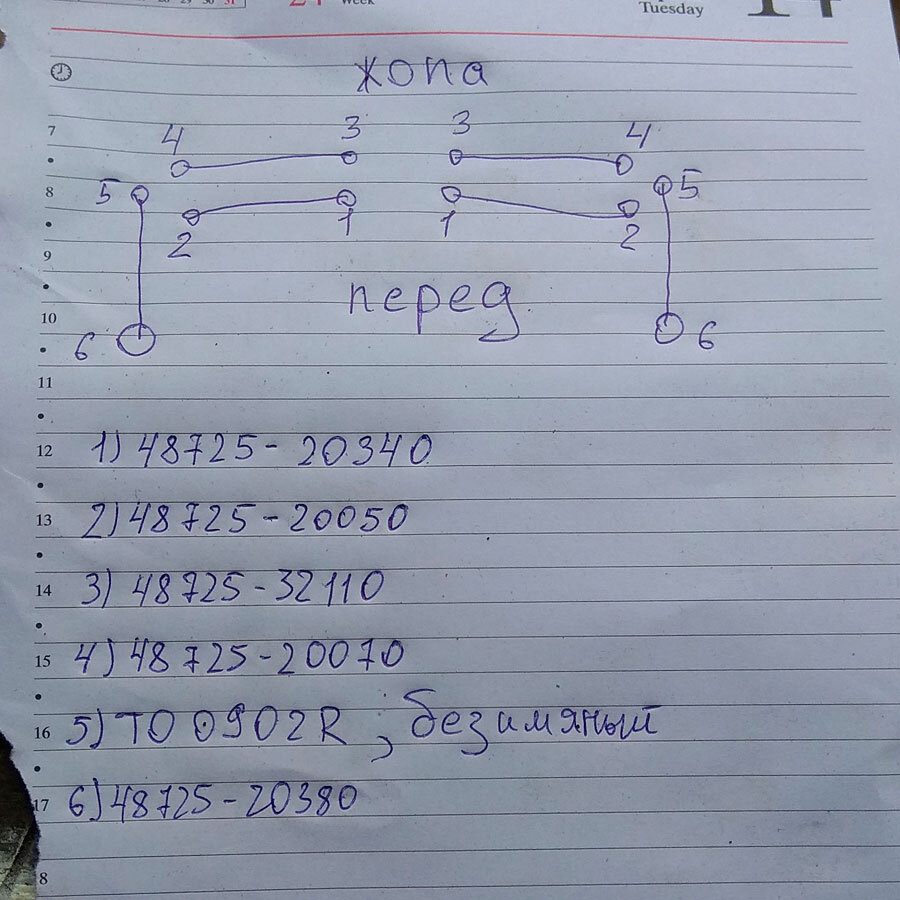 Week
Tuesday
жопа
7
4 3 3 4
8
5 5
2 1 1 2
9
перед
10
6 6
11
12 1) 48725 - 20340
13 2) 48725 - 20050
14 3) 48725 - 32110
15 4) 48725 - 20070
16 5) TO 0902R ; безимяный
17 6) 48725 - 20380
8